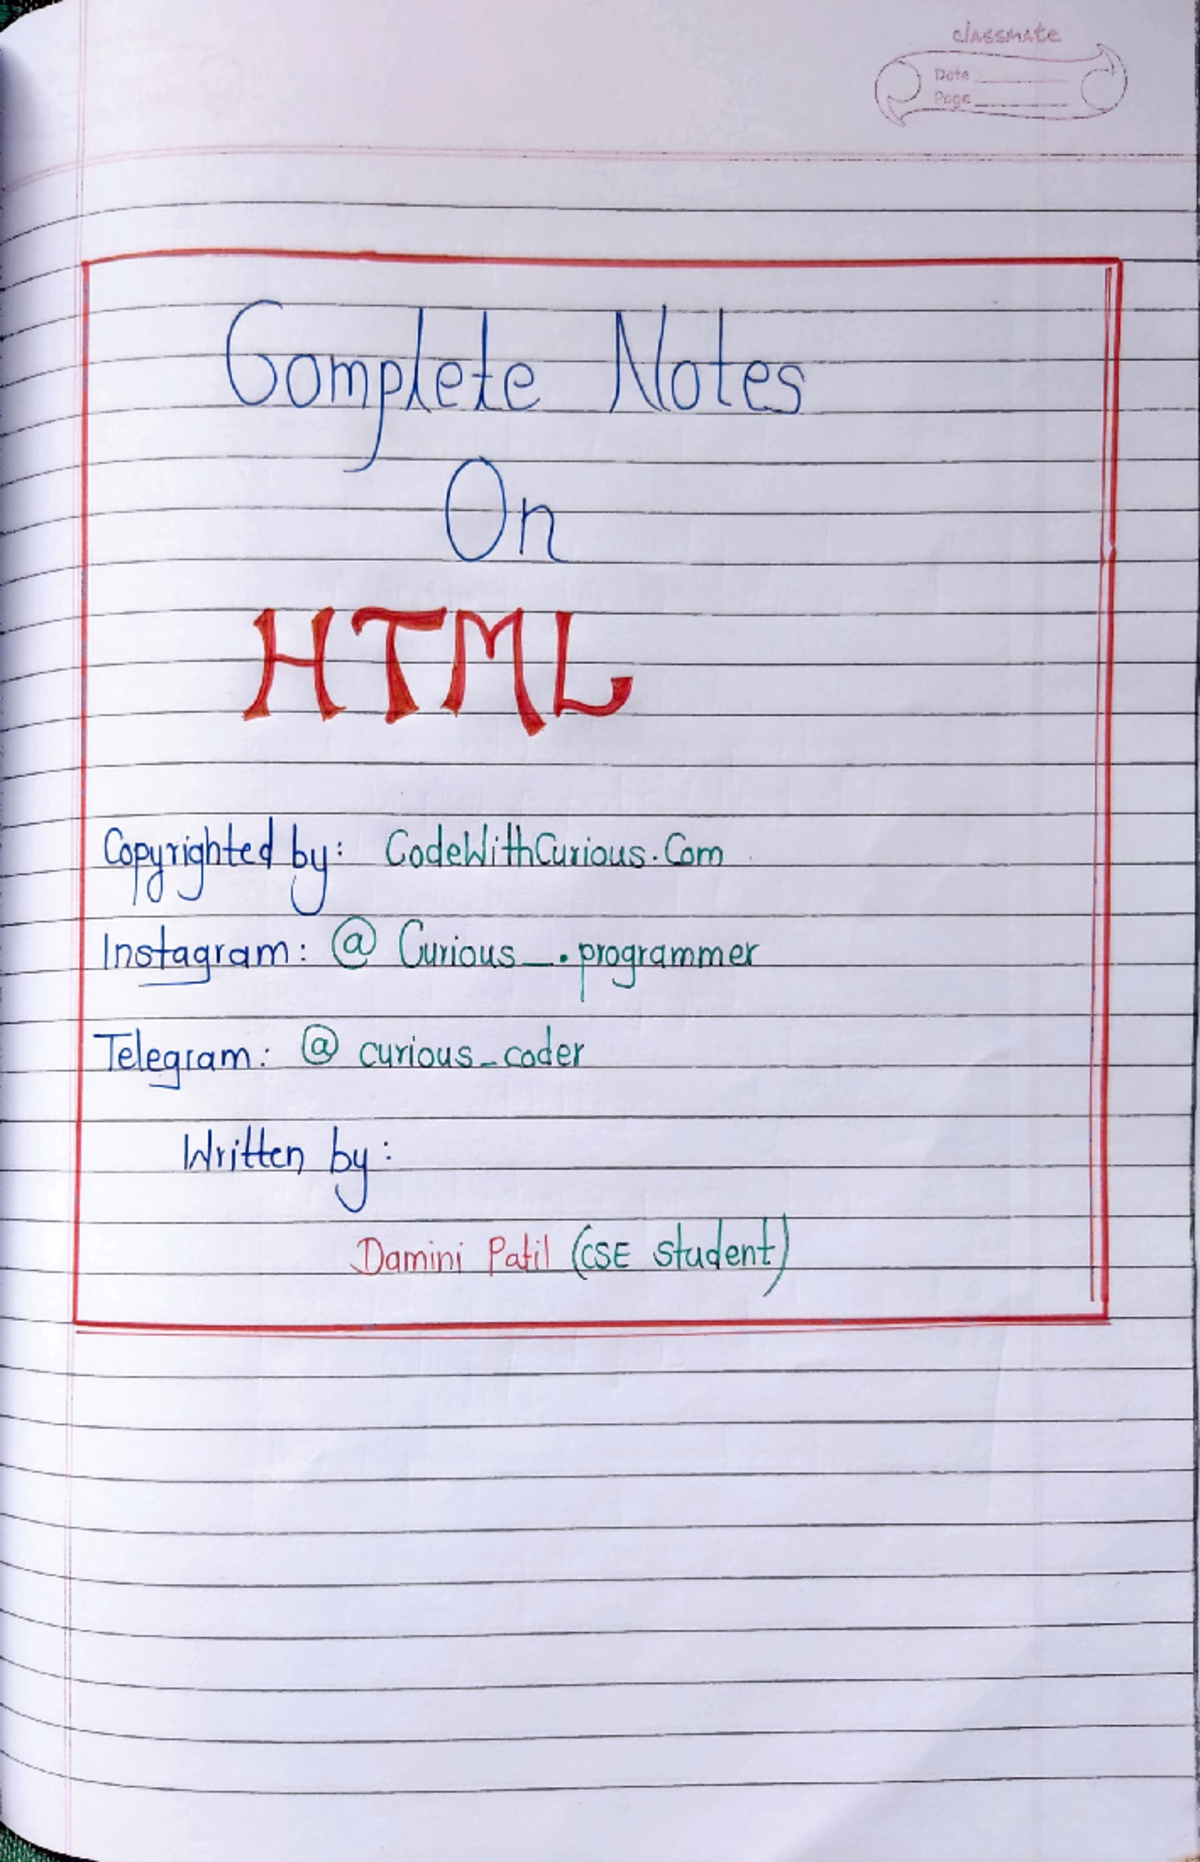 classmate
Date
Page
Complete Notes
On
HTML
Copyrighted by: CodeWithCurious.Com
Instagram: @ Curious_.programmer
Telegram: @ curious_coder
Written by:
Damini Patil (CSE student)